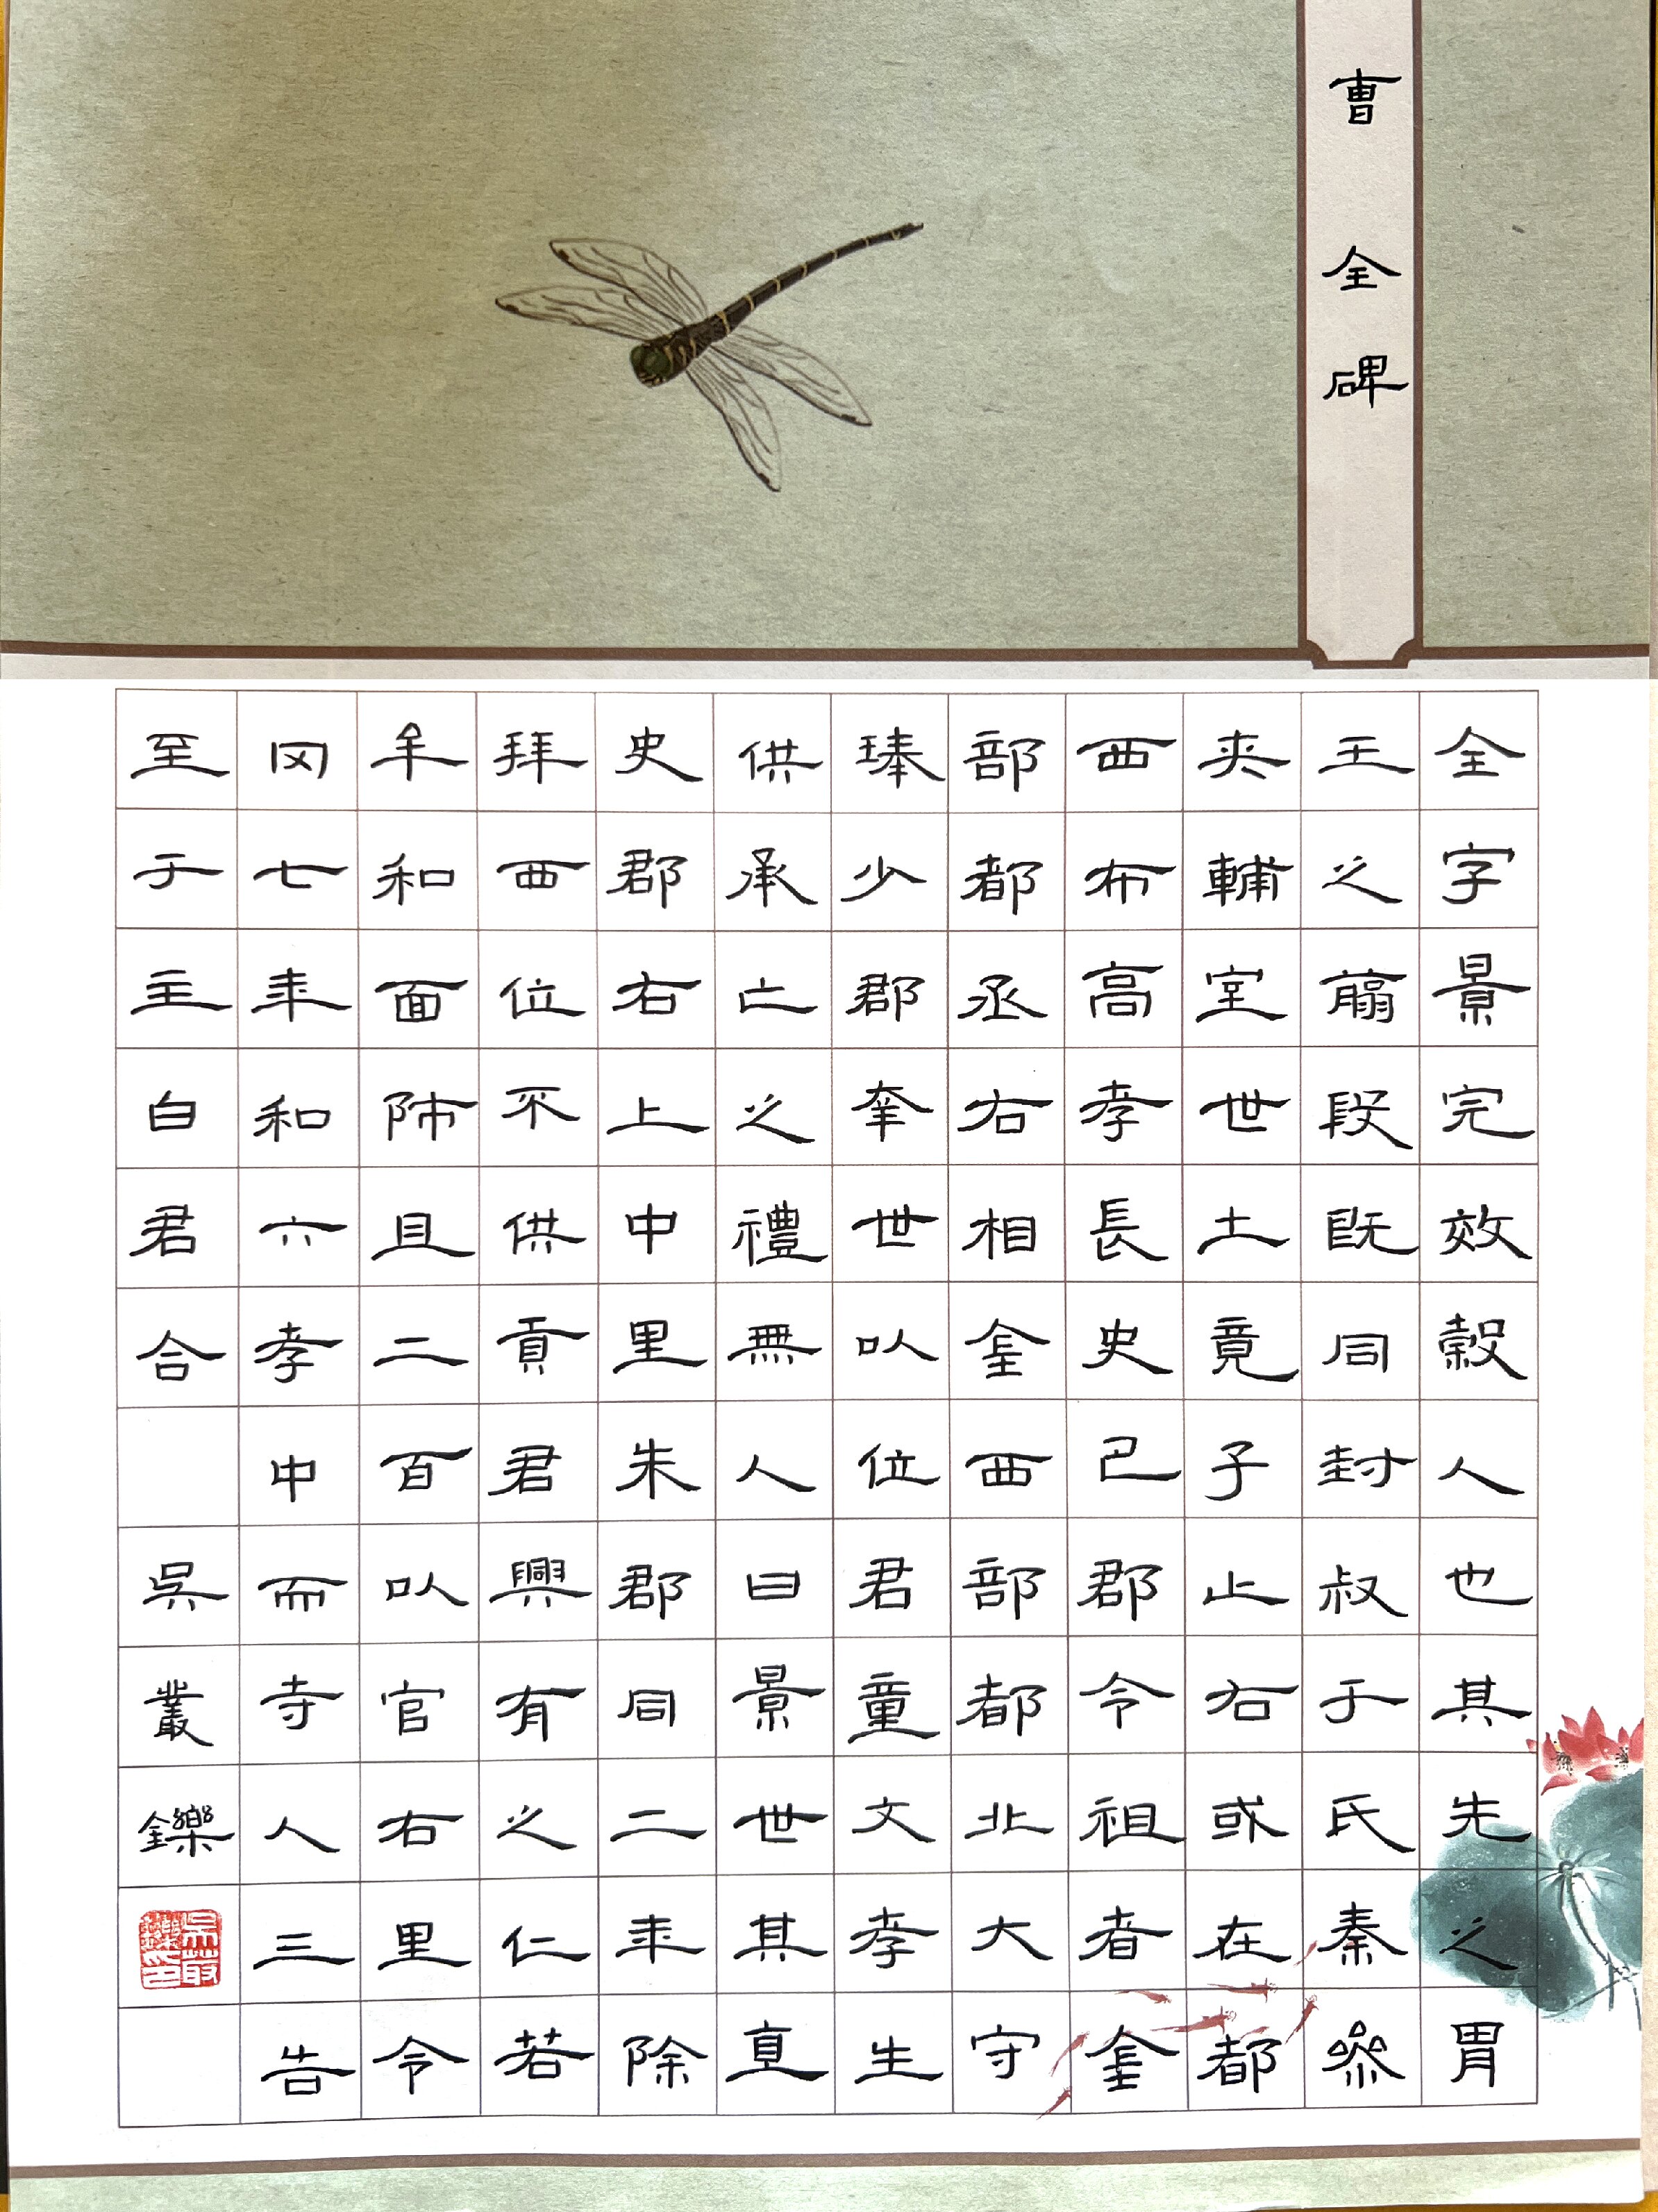 曹全碑
全字景完效穀人也其先之胄
王之翦殷既同封叔于氏秦參
夾輔室世土竟子止右或在都
西布高孝長史已郡令祖者金
部都丞右相金西部都北大守
琫少郡幸世以位君童文孝生
供承亡之禮無人曰景世其直
史郡右上中里朱郡同二年除
拜西位不供貢君興有之仁若
牟和面師且二百以官右里令
冈七年和六孝中而寺人三告
至于主白君合 吳叢鑠
吳叢鑠印